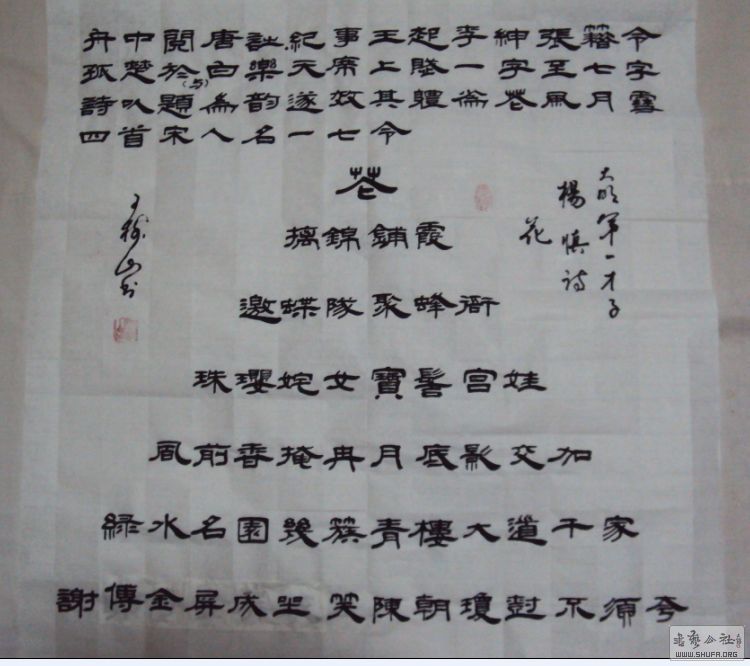 舟中閱唐詩紀事王起李紳張籍令
孤楚於白樂天席上賦一字至七字
(与)
詩以題為韵遂效其體花風月雪
四首宋人名一七令
大明第一才子
楊慎詩
花
花
摛錦鋪霞
邀蝶隊聚蜂衙
珠瓔姹女寶髻宮娃
風前香掩冉月底影交加
綠水名園幾簇青樓大道千家
謝傅金屏成坐笑陳朝瓊尌不須夸
山书
书艺公社
WWW.SHUFA.ORG